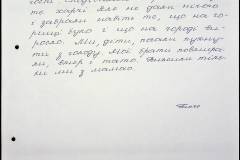 те харчі але не дали нічого
і забрали навіть те, що на го-
рищі було і що на городі ви-
росло. Ми, діти, почали пухну-
ти з голоду. Мої брати повмира-
ли, вмер і тато. Вижили тіль-
ки ми з мамою.